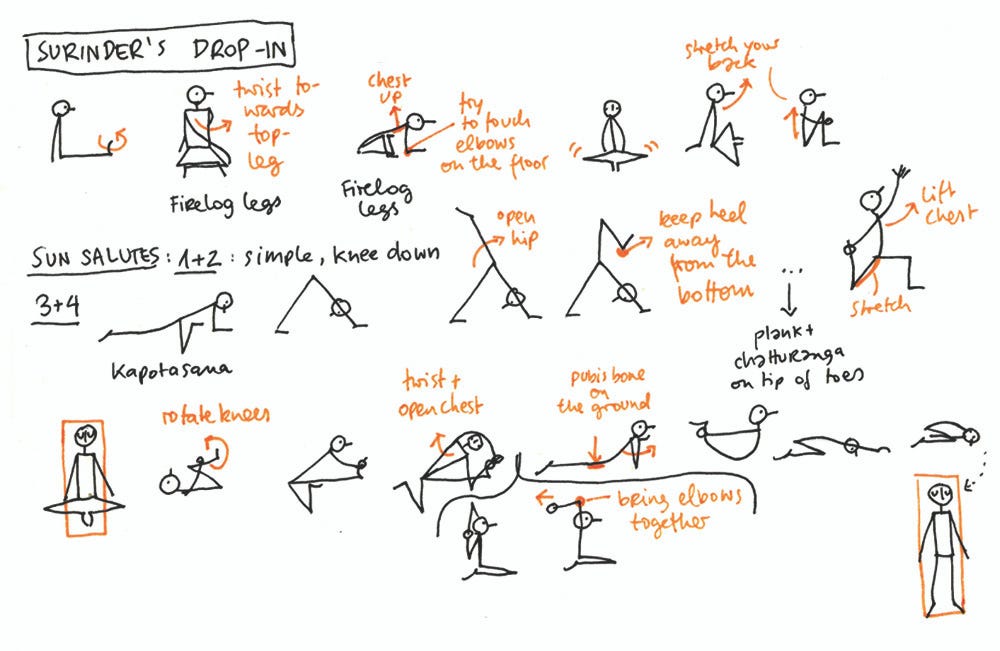 SURINDER'S DROP-IN
twist to-
wards
top-
leg
Firelog legs
chest
up
Firelog
legs
try
to touch
elbows
on the floor
stretch your
back
SUN SALUTES: 1+2: simple, knee down
open
hip
keep heel
away
from the
bottom
...
plank+
chatturanga
on tip of toes
Lift
chest
stretch
3+4
Kapotasana
rotate knees
twist +
open chest
pubis bone
on
the ground
bring elbows
together